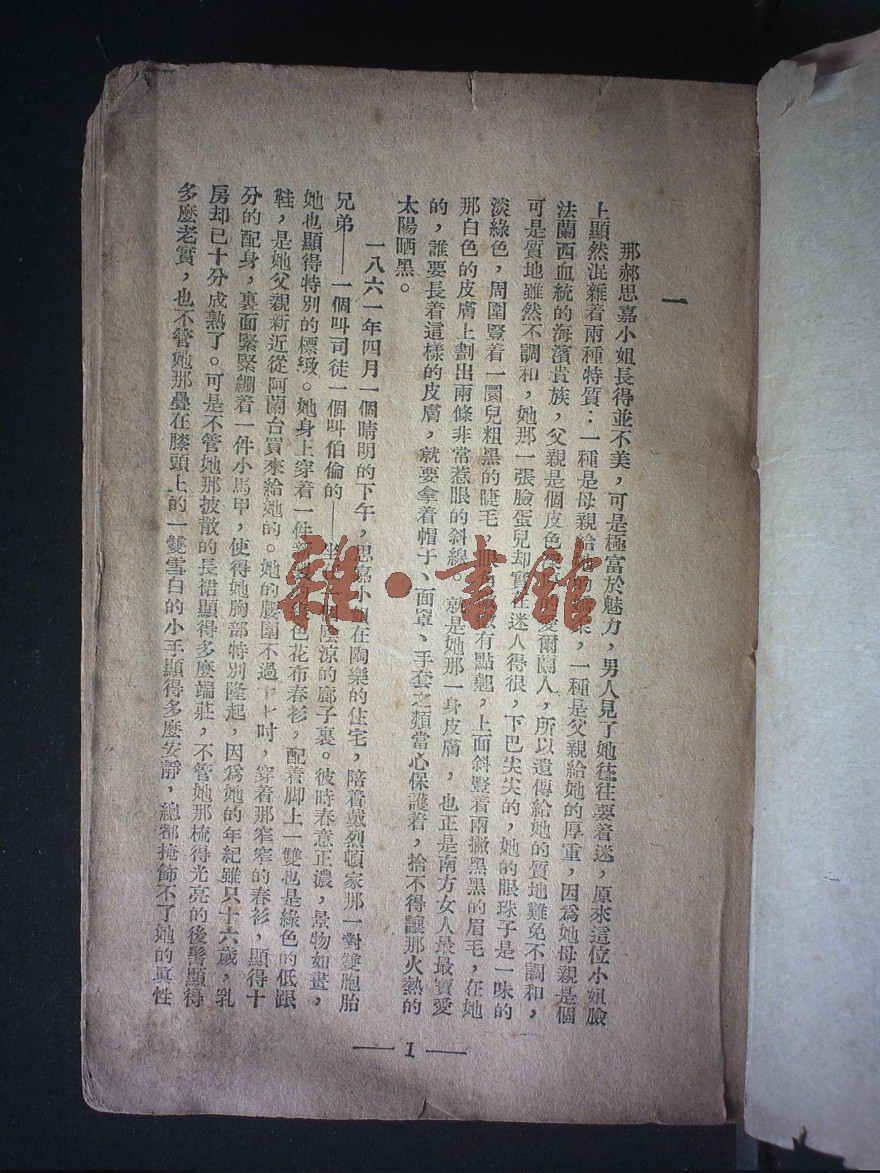 一
那郝思嘉小姐長得並不美，可是極富於魅力，男人見了她往往要着迷，原來這位小姐臉
上顯然混雜着兩種特質：一種是母親給她的，一種是父親給她的厚重，因爲她母親是個
法蘭西血統的海濱貴族，父親是個皮色愛爾蘭人，所以遺傳給她的質地難免不調和，
可是質地雖然不調和，她那一張臉蛋兒却實在迷人得很，下巴尖尖的，她的眼珠子是一味的
淡綠色，周圍豎着一圜兒粗黑的睫毛，眼角有點翹，上面斜豎着兩撇黑黑的眉毛，在她
那白色的皮膚上劃出兩條非常惹眼的斜線。就是她那一身皮膚，也正是南方女人最最寶愛
的，誰要長着這樣的皮膚，就要拿着帽子、面罩、手套之類當心保護着，捨不得讓那火熱的
太陽晒黑。
一八六一年四月一個晴明的下午，思嘉小姐在陶樂的住宅，陪着戴烈頓家那一對雙胞胎
兄弟——一個叫司徒一個叫伯倫的——坐陰涼的廊子裏。彼時春意正濃，景物如畫，
她也顯得特別的標緻。她身上穿着一件色花布春衫，配着脚上一雙也是綠色的低跟
鞋，是她父親新近從阿蘭台買來給她的。她的腰圍不過十七吋，穿着那窄窄的春衫，顯得十
分的配身，裏面緊緊綳着一件小馬甲，使得她胸部特別隆起，因爲她的年紀雖只十六歲，乳
房却已十分成熟了。可是不管她那披散的長裙顯得多麼端莊，不管她那梳得光亮的後髻顯得
多麼老實，也不管她那疊在膝頭上的一雙雪白的小手顯得多麼安靜，總都掩飾不了她的眞性
— 1 —
雜·書館